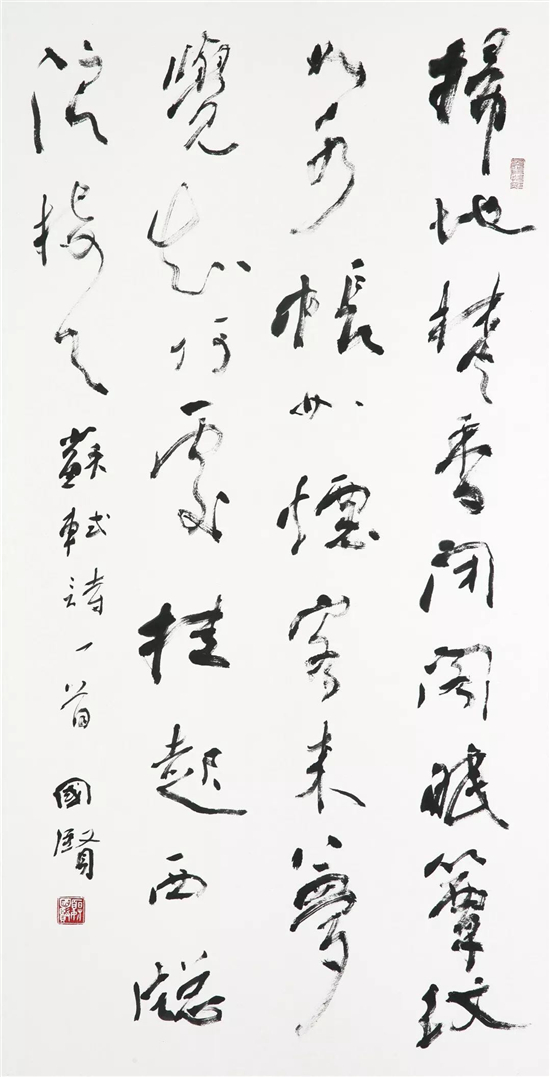 掃地焚香閉閣眠簟紋
如水帳如煙客来夢
覺知何處挂起西窓
浪接天
蘇軾詩一首 國賢